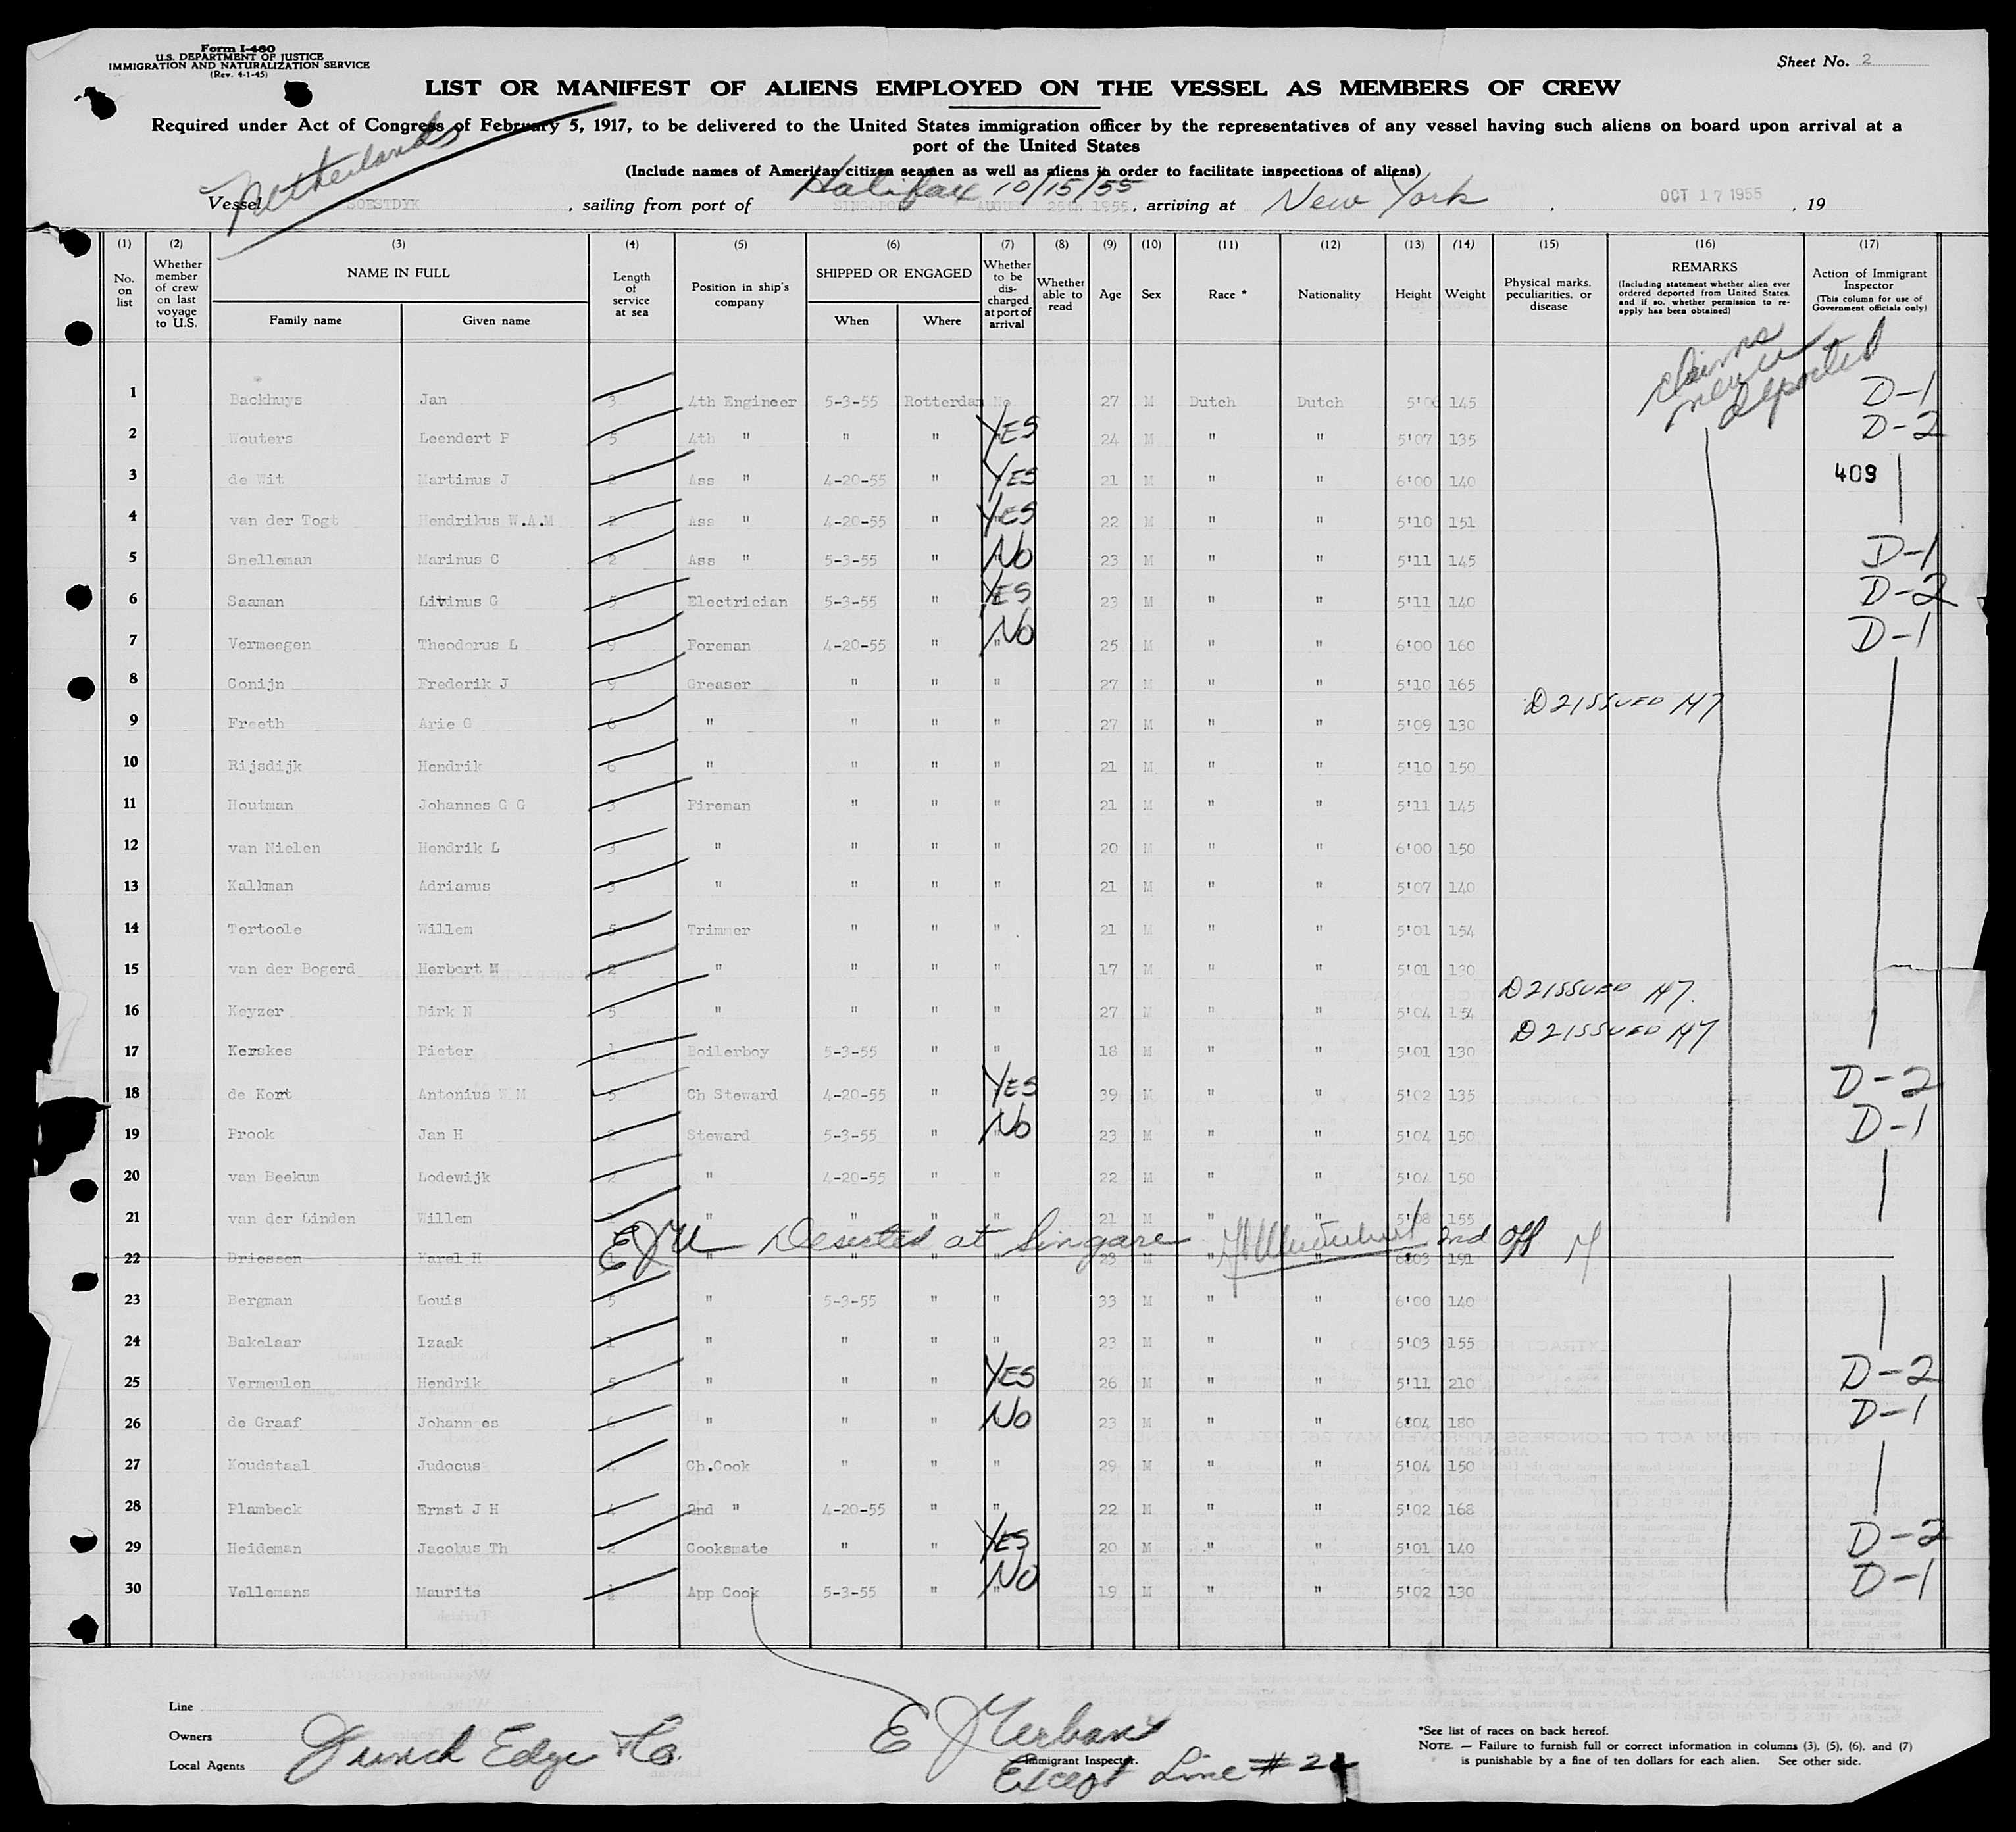 Form I-480
U.S. DEPARTMENT OF JUSTICE
IMMIGRATION AND NATURALIZATION SERVICE
(Rev. 4-1-45)
Sheet No. 2
LIST OR MANIFEST OF ALIENS EMPLOYED ON THE VESSEL AS MEMBERS OF CREW
Required under Act of Congress of February 5, 1917, to be delivered to the United States immigration officer by the representatives of any vessel having such aliens on board upon arrival at a
port of the United States
(Include names of American citizen seamen as well as aliens in order to facilitate inspections of aliens)
Netherlands
Halifax 10/15/55
Vessel SOESTDYK, sailing from port of SINGAPORE AUGUST 25th 1955, arriving at New York, OCT 17 1955, 19
(1) (2) (3) (4) (5) (6) (7) (8) (9) (10) (11) (12) (13) (14) (15) (16) (17)
No. on list
Whether member of crew on last voyage to U.S.
NAME IN FULL
Family name Given name
Length of service at sea
Position in ship's company
SHIPPED OR ENGAGED
When Where
Whether to be discharged at port of arrival
Whether able to read
Age
Sex
Race *
Nationality
Height
Weight
Physical marks, peculiarities, or disease
REMARKS
(Including statement whether alien ever ordered deported from United States, and if so, whether permission to re-apply has been obtained)
Action of Immigrant Inspector
(This column for use of Government officials only)
claims never deported
1 Backhuys Jan 3 4th Engineer 5-3-55 Rotterdam No 27 M Dutch Dutch 5'06 145 D-1
2 Wouters Leendert P 5 4th " " " YES 24 M " " 5'07 135 D-2
3 de Wit Martinus J 2 Ass " 4-20-55 " YES 21 M " " 6'00 140 409
4 van der Togt Hendrikus W.A.M 2 Ass " 4-20-55 " YES 22 M " " 5'10 151
5 Snelleman Marinus C 2 Ass " 5-3-55 " No 23 M " " 5'11 145 D-1
6 Saaman Litinus G 5 Electrician 5-3-55 " YES 23 M " " 5'11 140 D-2
7 Vermeegen Theodorus L 9 Foreman 4-20-55 " No 25 M " " 6'00 160 D-1
8 Conijn Frederik J 9 Greaser " " " 27 M " " 5'10 165
9 Freeth Arie G 6 " " " " 27 M " " 5'09 130 D2 ISSUED
10 Rijsdijk Hendrik 6 " " " " 21 M " " 5'10 150
11 Houtman Johannes G G 3 Fireman " " " 21 M " " 5'11 145
12 van Nielen Hendrik L 3 " " " " 20 M " " 6'00 150
13 Kalkman Adrianus 3 " " " " 21 M " " 5'07 140
14 Tertoole Willem 5 Trimmer " " " 21 M " " 5'01 154
15 van der Bogerd Herbert M 2 " " " " 17 M " " 5'01 130
16 Keyzer Dirk N 5 " " " " 27 M " " 5'04 154 D2 ISSUED
17 Kerskes Pieter 1 Boilerboy 5-3-55 " " 18 M " " 5'01 130 D2 ISSUED
18 de Kort Antonius W M 5 Ch Steward 4-20-55 " YES 39 M " " 5'02 135 D-2
19 Prook Jan H 2 Steward 5-3-55 " No 23 M " " 5'04 150 D-1
20 van Beekum Lodewijk 2 " 4-20-55 " " 22 M " " 5'04 150
21 van der Linden Willem 1 " " " " 21 M " " 5'08 155
EJU Deserted at Singapore 2nd Off
22 Driessen Karel H 1 " " " " 23 M " " 6'03 191
23 Bergman Louis 5 " 5-3-55 " " 33 M " " 6'00 140
24 Bakelaar Izaak 1 " " " " 23 M " " 5'03 155
25 Vermeulen Hendrik 5 " " " YES 26 M " " 5'11 210 D-2
26 de Graaf Johannes 6 " " " No 23 M " " 6'04 180 D-1
27 Koudstaal Judocus 4 Ch.Cook " " " 29 M " " 5'04 150
28 Plambeck Ernst J H 4 2nd " 4-20-55 " " 22 M " " 5'02 168
29 Heideman Jacobus Th 2 Cooksmate " " YES 20 M " " 5'01 140 D-2
30 Vellemans Maurits ½ App Cook 5-3-55 " No 19 M " " 5'02 130 D-1
Line
Owners
Local Agents Funch Edye & Co.
E J Urban
Immigrant Inspector.
Except Line #22
*See list of races on back hereof.
NOTE. — Failure to furnish full or correct information in columns (3), (5), (6), and (7)
is punishable by a fine of ten dollars for each alien. See other side.